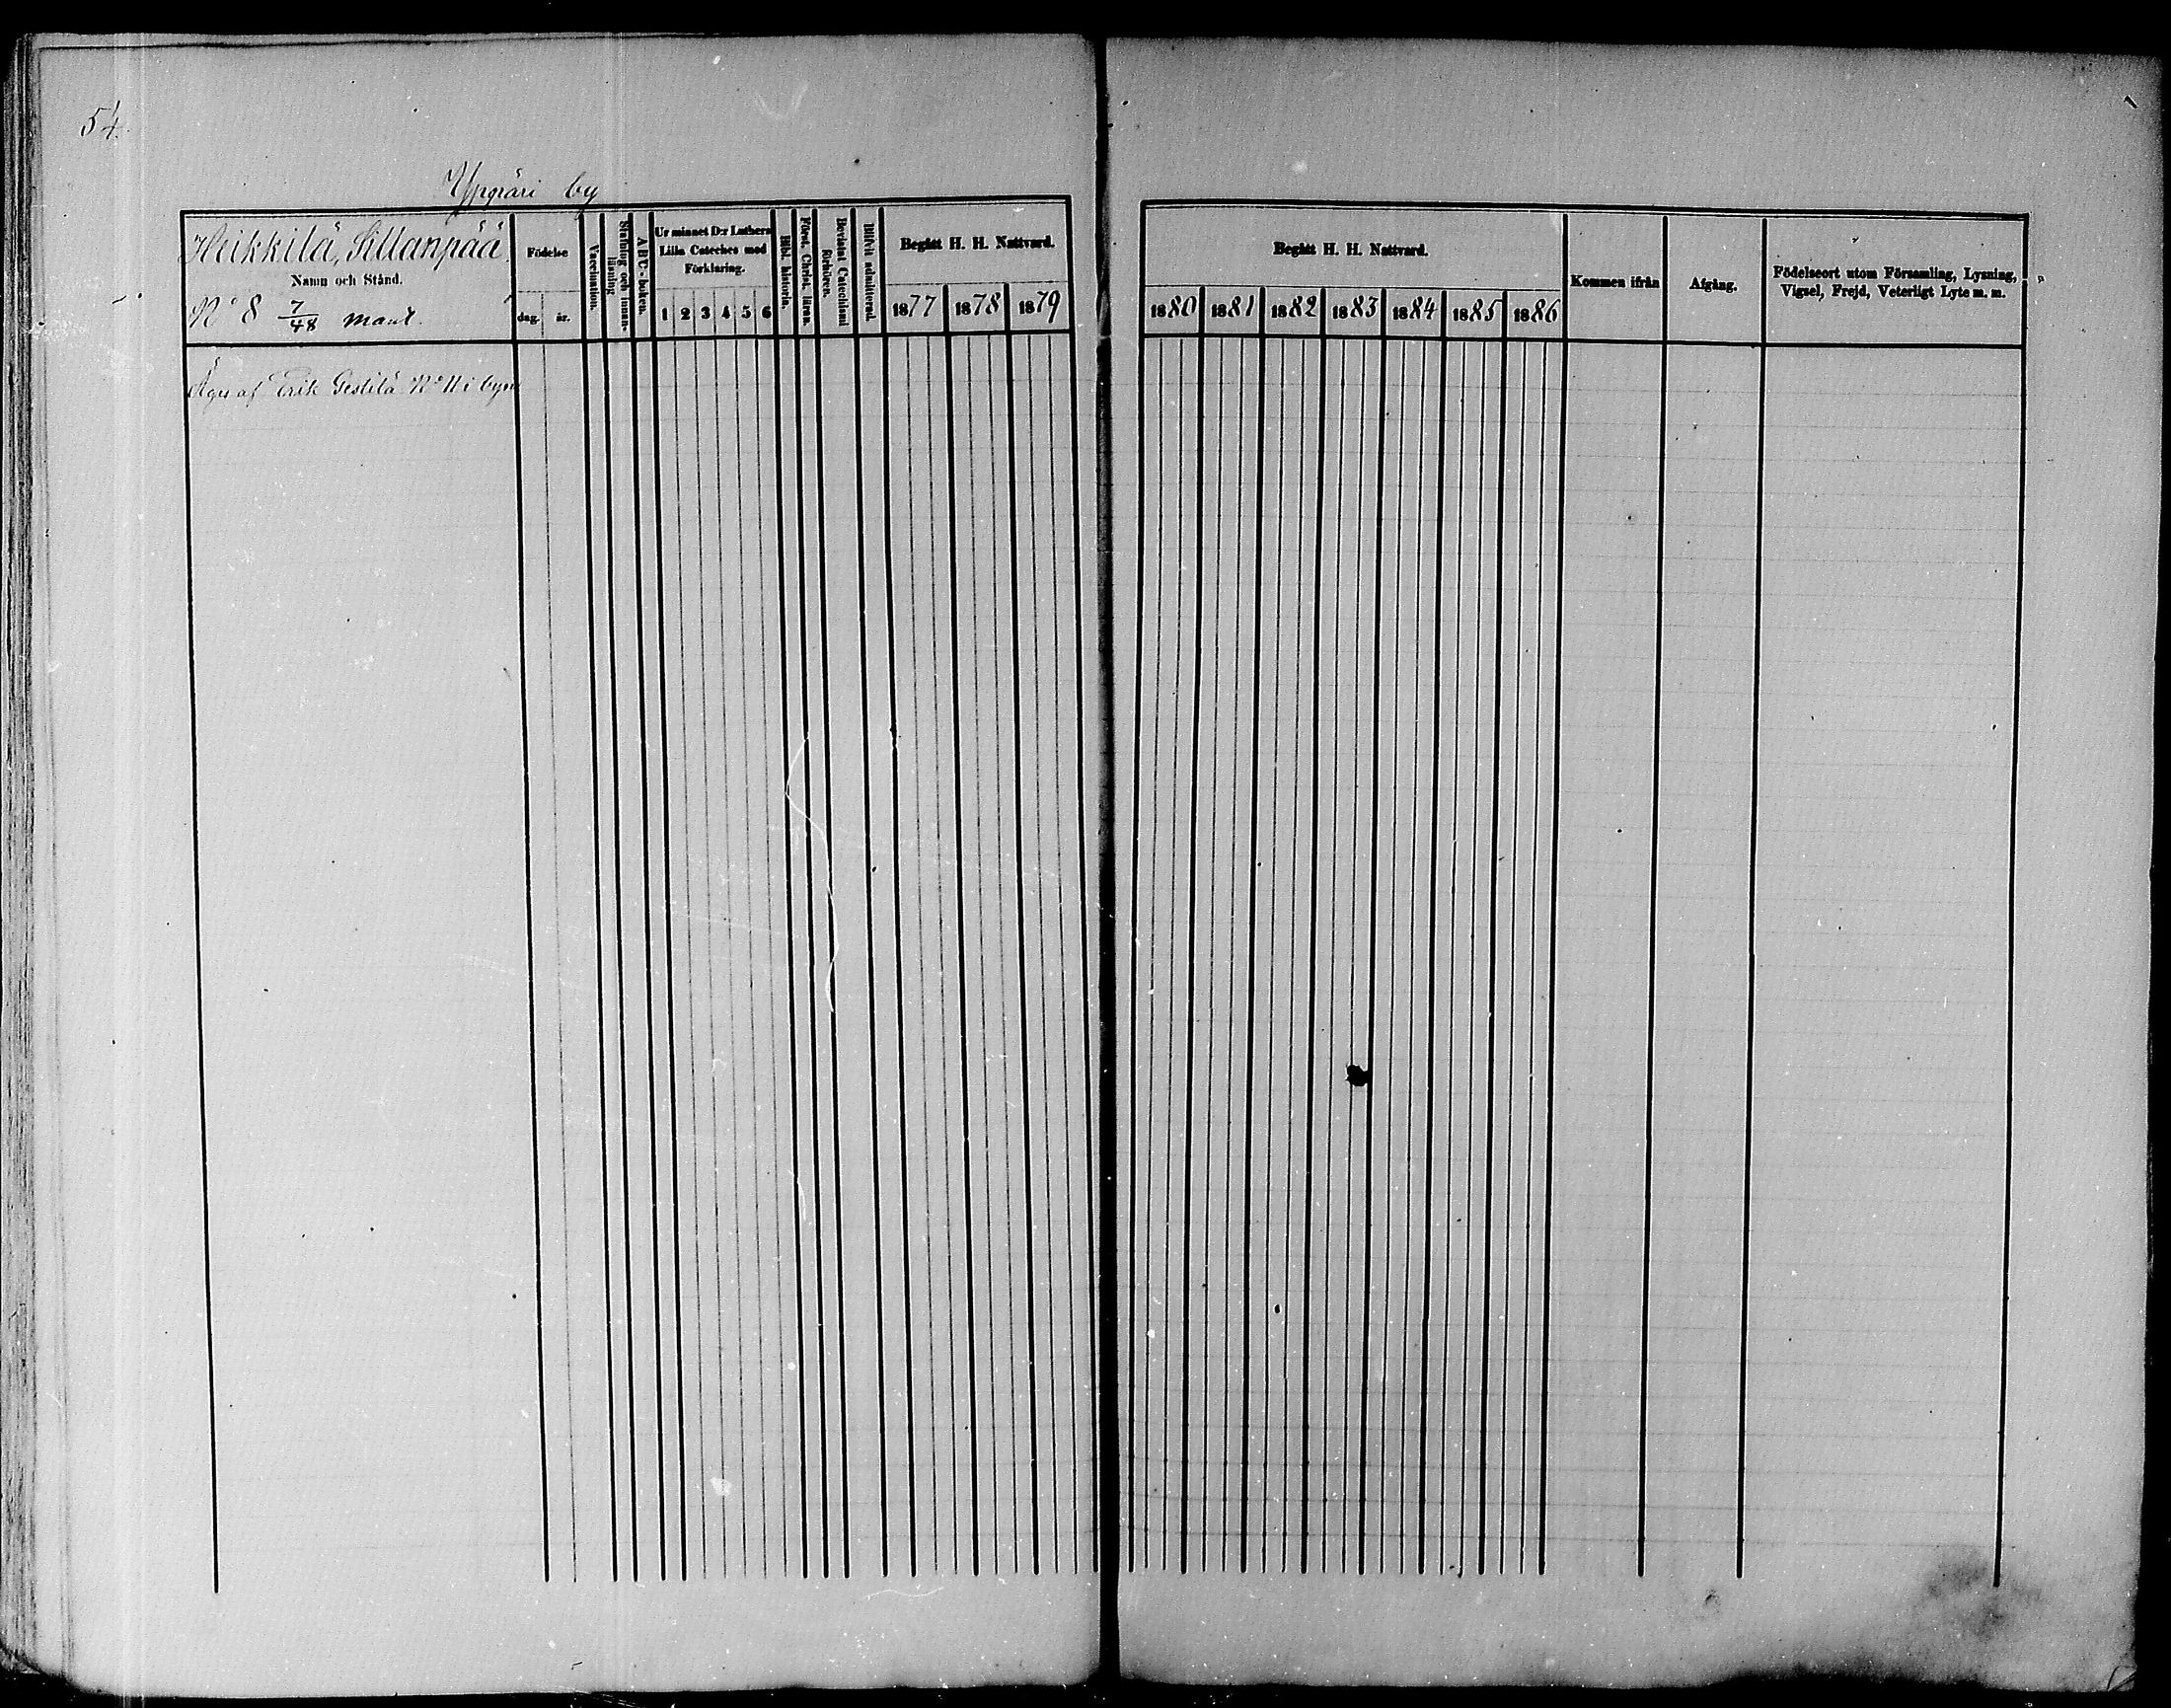 54.
Yppäri by
Heikkilä, Sillanpää
Namn och Stånd.
No 8 7/48 mant.
Födelse
dag. år.
Vaccination.
Stafning och innanläsning
ABC-boken.
Ur minnet D:r Luthers
Lilla Cateches med
Förklaring.
1 2 3 4 5 6
Bibl. historia.
Först. Christ. läran.
Bevistat Catechismi förhören.
Blifvit admitterad.
Begått H. H. Nattvard.
1877 1878 1879
Äges af Erik Gestilä No 11 i byn
Begått H. H. Nattvard.
1880 1881 1882 1883 1884 1885 1886
Kommen ifrån
Afgång.
Födelseort utom Församling, Lysning,
Vigsel, Frejd, Veterligt Lyte m. m.